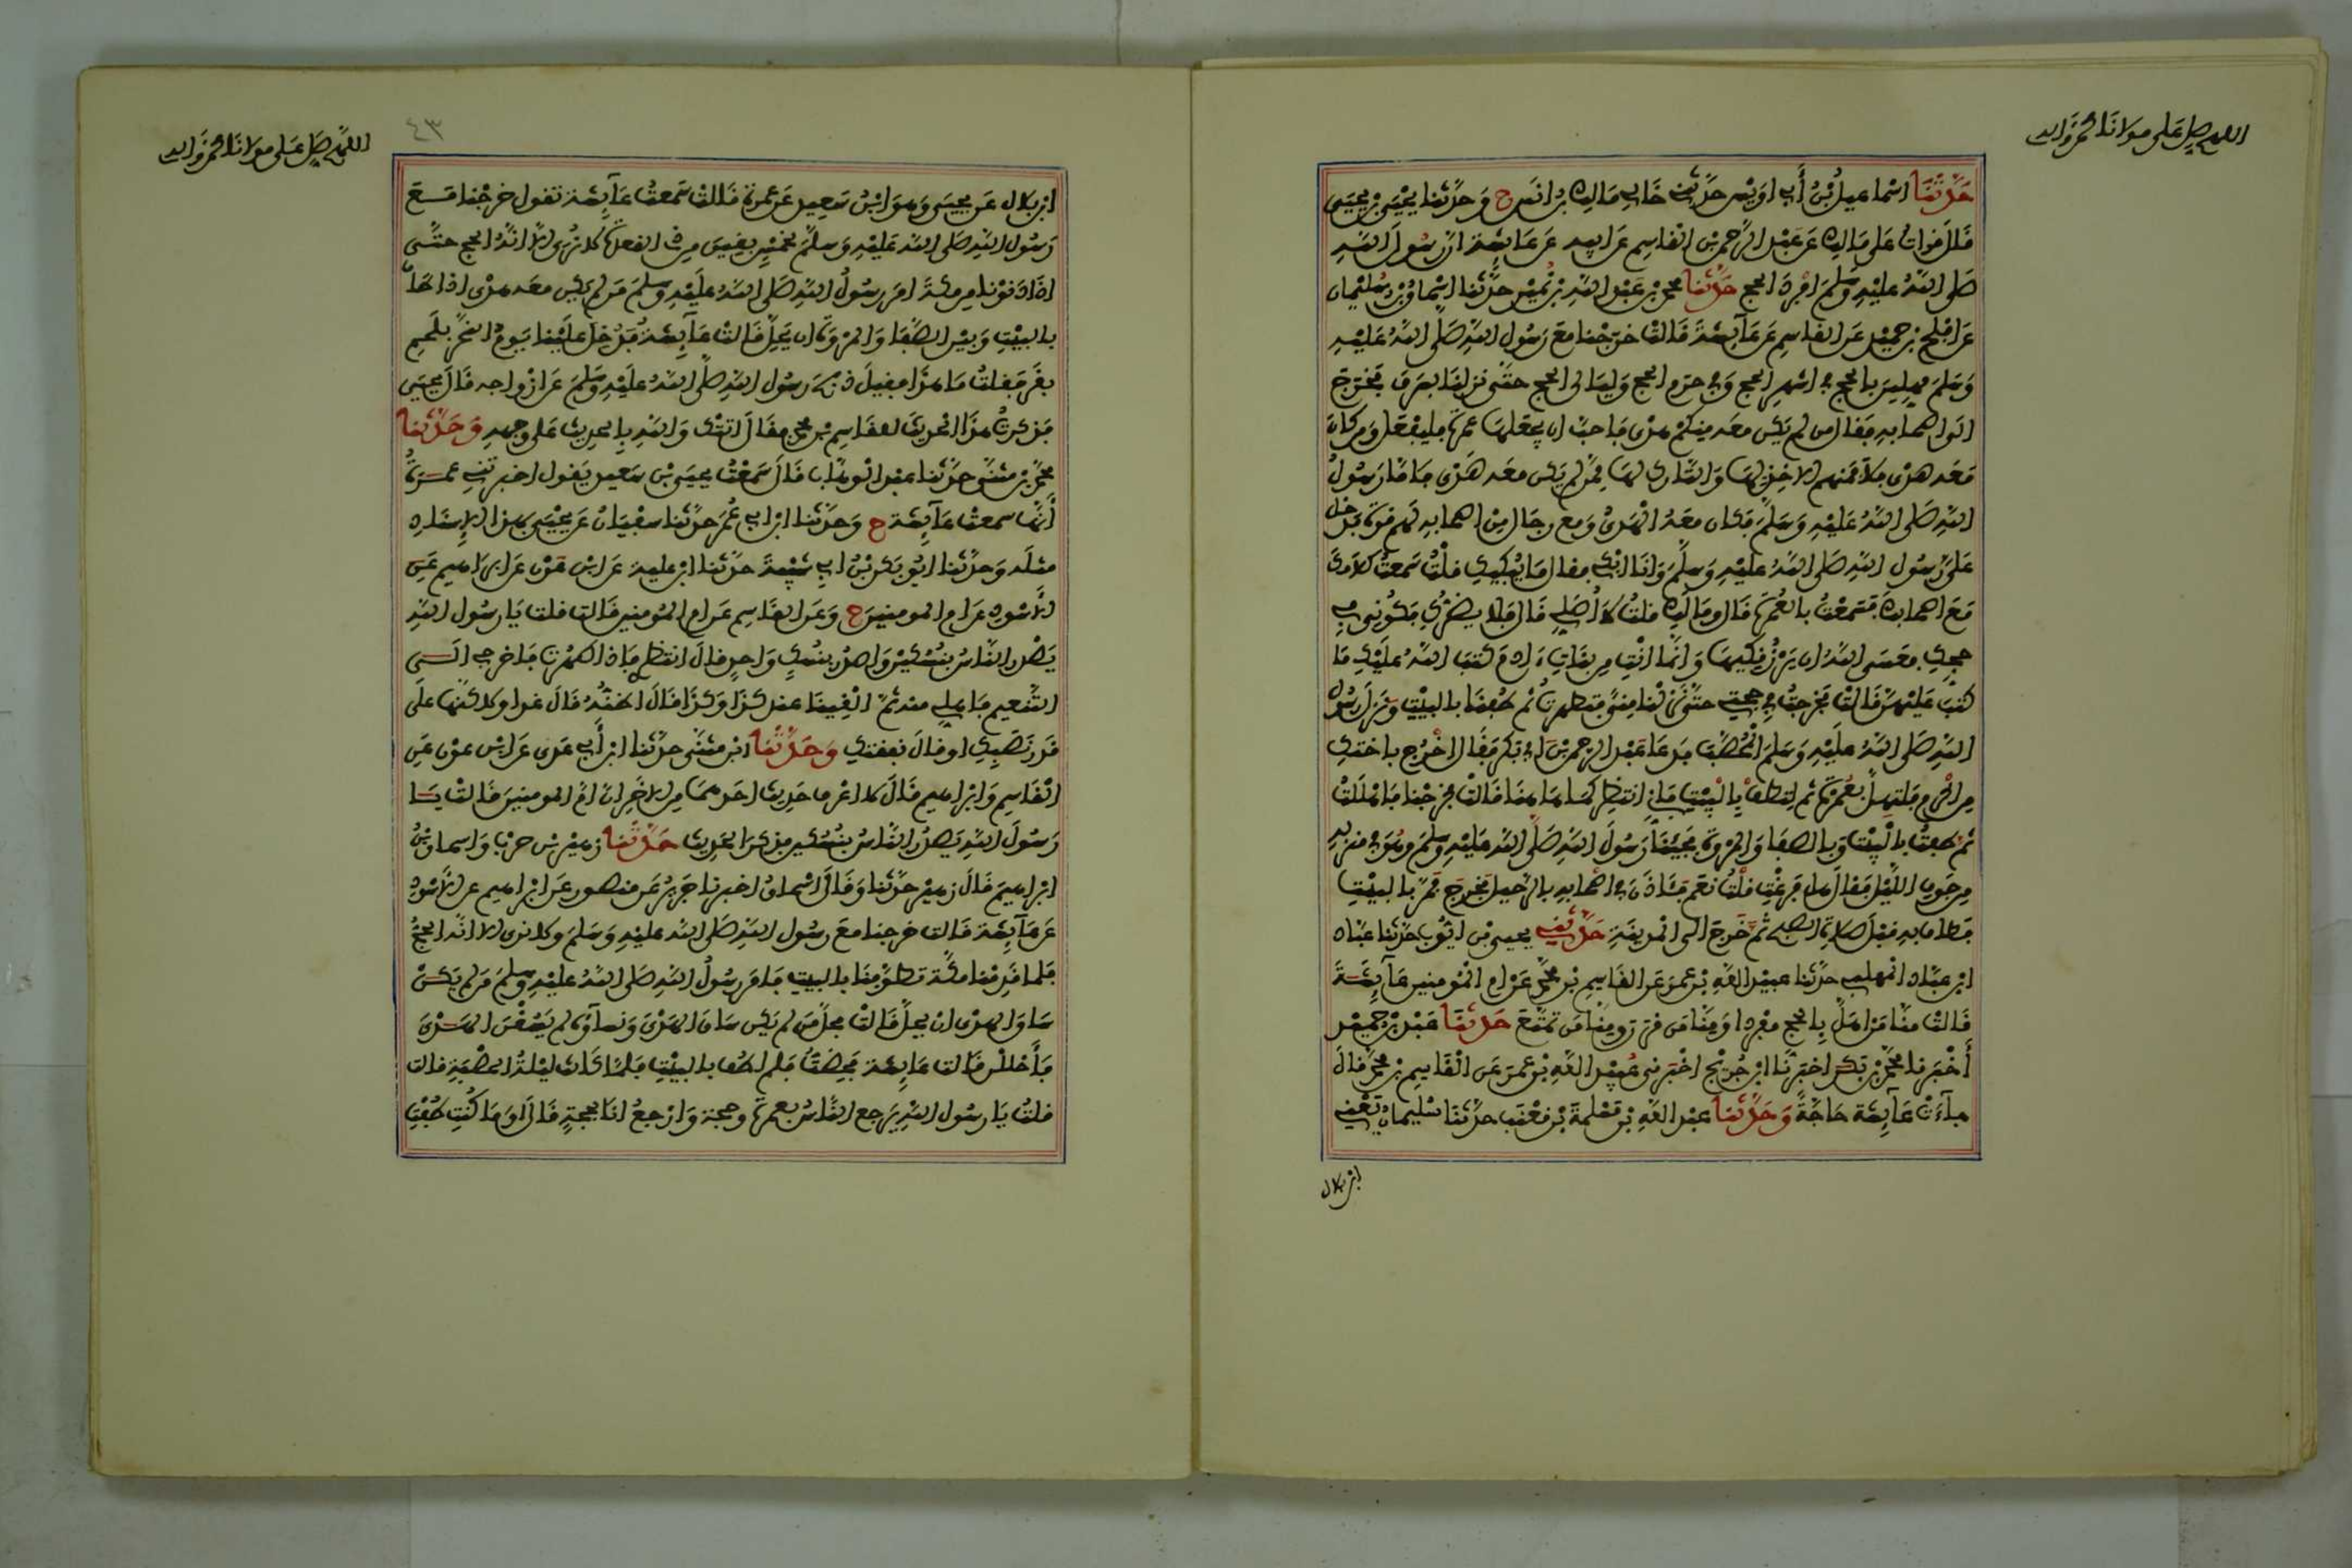 اللهم صل على مولانا محمد وآله
حَدَّثَنَا اسماعيلُ بْنُ أَبِي اويْسٍ حَدَّثَنِي خَالِي مَالِكُ بنُ انَسٍ ح وَحدَّثَنا يحْيَى بْنُ يحيَى
قَالَ قراتُ عَلى مَالِكٍ عَن عَبْد الرَّحمن بْنِ القاسِم عَن أبِيهِ عَن عَايِشَةَ انَّ رَسُولَ اللَّهِ
صَلى اللَّهُ عليْهِ وَسلَّمَ افْرَدَ الحج حَدَّثَنَا محمد بْن عَبْد اللَّهِ بْن نُمَيْرٍ حدَّثَنَا اسْحاقُ بْن سُليْمان
عَن افلح بن حميْد عَن القاسِم عَن عَآيِشَةَ قَالَتْ خَرَجْنا مَعَ رَسُول اللَّهِ صَلَّى اللَّهُ عَليْهِ
وَسَلمَ مهِلِّينَ بالحج في اشهرِ الحج وَفي حرم الحج وَليَالى الحج حتَّى نزلنَا بسَرفَ فخَرَجَ
الى اصحابِهِ فقال من لم يَكن معَه منكمْ هدى فاحبَّ ان يجْعلهَا عمرة فليفْعَل ومن كان
مَعَه هدْى فلا فمنهم الاخِذ بهَا وَالتَّارك لهَا ممَّن لم يَكن معَه هَدْي فامَّا رَسُولُ
اللَّهِ صَلى اللَّهُ عَليْهِ وَسَلَّمَ فكان معَهُ الهَدْىُ وَمع رجَال مِن اصحابِهِ لهم قوة فدخل
عَلىَّ رَسُول اللَّهِ صَلى اللَّهُ عليْهِ وَسَلَّمَ وَانَا ابْكى فقال مَا يُبْكيكِ قلْتُ سَمعتُ كلامَكَ
مَعَ اصحَابِكَ فسَمعْتُ بالعُمرَة قَالَ وَمَا لَكِ قلتُ لَا أُصَلِّي قَالَ فلا يضرُّكِ فكُونِى في
حجِّكِ فعَسَى اللَّهُ ان يَرْزُقكِيهَا وَانَّمَا انْتِ مِن بنَاتِ ءَادم كتبَ اللَّهُ عليْكِ مَا
كتبَ عَليْهنَّ قَالَتْ فخرجتُ في حجتِي حتَّى نزلْنَا منًى فتطهرتُ ثم طُفنَا بالبيْتِ وَنزَل رَسُول
اللَّهِ صَلى اللَّهُ عليْهِ وَسَلمَ المُحَصَّبَ فدعَا عَبْد الرحمن بْنَ ابِي بَكر فقَالَ اخْرُج باختِكَ
مِن الحَرم فلتهِلَّ بعُمْرَة ثم لِتطُفْ بِالْبَيْتِ فإنّي انتظركمَا هَا هنَا قَالتْ فخرجْنا فاهْلَلتُ
ثم طفتُ بالْبيْتِ وَبالصفَا وَالمرْوَة فجئنَا رَسُولَ اللَّهِ صَلَّى اللَّهُ عَليْهِ وسلَّمَ وهُوَ في منزلِهِ
مِن جَوْفِ اللَّيْل فقَالَ هل فرَغْتِ قلْتُ نعَم فَئَاذَنَ في اصْحابِهِ بالرَّحيل فخرَجَ فمَرَّ بالبيْتِ
فطَافَ بِهِ قبْلَ صَلاة الصُّبح ثُمَّ خَرجَ الى المدينَةِ حَدَّثَنِي يحيى بْن ايُّوب حدَّثَنا عبَّاد
ابن عَبَّاد المهلبي حدَّثنا عبيْد اللَّهِ بْن عمرَ عَن القَاسِم بْن محمَّد عَن ام المُومنِين عَآيِشَةَ
قَالتْ منَّا مَن اهَلَّ بِالحج مفردا وَمِنَّا مَن قرن وَمِنَّا مَن تمتَّعَ حَدَّثَنَا عَبْد بْن حُمَيْد
أَخْبَرنا محمَّد بْن بَكر اخبَرنَا ابْن جُريْج اخْبَرنِى عُبَيْد اللَّهِ بْن عمرَ عَن الْقَاسِم بْن محمَّد قالَ
جآءَتْ عآيِشَة حَاجَّةً وَحَدَّثَنَا عبْد اللَّهِ بْن مَسْلمةَ بْن قعْنَب حدَّثنَا سُليمانُ يَعْنِي
ابن بلال
اللهم صَلِّ عَلى مولانَا محمد وَآله
٤٣
ابن بلال عَن يحيَى وَهوَ ابْنُ سَعِيد عَن عمرة قَالتْ سَمعتُ عَآيِشَة تقول خرجْنا مَعَ
رَسُول اللَّهِ صَلى اللَّه عَليْهِ وَسلَّمَ لخمْسٍ بقِينَ مِن ذي القعدة لا نُرى الا انَّهُ الحج حتَّى
اذَا دَنوْنا مِن مكَّةَ امَرَ رسُولُ اللَّهِ صَلى اللَّهُ عليْهِ وسَلمَ مَن لم يكن معَه هدْى اذا طَافَ
بالبيْتِ وَبيْن الصَّفَا وَالمرْوَة ان يَحِلَّ قَالتْ عَآيِشَةُ فدُخِلَ عليْنا يَوْمَ النحرِ بلَحمِ
بقَرٍ فقلتُ مَا هذَا فقيلَ ذبَحَ رسُول اللَّهِ صَلَّى اللَّهُ عليْهِ وَسَلَّمَ عَن ازْواجِه قَالَ يحيَى
فَذكرتُ هذَا الحَدِيثَ للقَاسِم بْن محمدٍ فقَالَ اتتْكَ وَاللَّهِ بِالحدِيثِ عَلى وَجهِهِ وَحَدَّثَنَا
محمَّد بْن مثنَّى حدَّثنا عبْد الوهَّاب قَالَ سَمعْتُ يحيَى بْن سَعِيد يَقول اخبرتْنِي عمْرَةُ
أَنَّهَا سمعتْ عَآيِشَةَ ح وَحدَّثنا ابْن ابِي عُمَر حدَّثنا سفْيَانُ عَن يحْيَى بهذا الاِسنَاد
مثلَه وَحدَّثنا ابُو بَكر بْنُ ابِي شَيْبَةَ حدَّثنا ابْن عليَة عَن ابْن عَوْن عَن ابراهِيم عَنِ
الأَسْوَد عَن ام المومنين ح وَعَن القَاسِم عَن ام المُومنين قَالت قلت يَا رسُول اللَّهِ
يَصْدر النَّاسُ بنُسُكيْنِ وَاصْدُر بنسُكٍ وَاحِدٍ قالَ انتظرى فاذا طهُرْتِ فاخرجى الَى
التَّنعيم فاهلِّي منه ثُمَّ الْقينَا عندَ كذَا وَكذَا قَالَ اظنُّهُ قَالَ غدا ولاكنَّها علَى
قَدرِ نَصَبِكِ او قالَ نفقتِكِ وَحَدَّثَنَا ابْن مثنَّى حدَّثنا ابْن أَبِي عَدى عَن ابْن عَوْن عَنِ
القَاسِم وَابْراهِيم قَالَ لا اعْرفُ حَدِيثَ احَدهمَا مِن الاخَر انَّ امَّ المومنينَ قَالتْ يَا
رَسُولَ اللَّهِ يَصْدُر النَّاسُ بنُسُكيْن فذكرَ الحدِيثَ حَدَّثَنَا زهيْر بْن حرْب وَاسحاق بْنُ
ابْراهِيمَ قَالَ زهيْر حدَّثنا وَقَالَ اسْحاقُ اخبرنا جَرِيرٌ عَن منصور عَن ابْراهيم عن الاسْوَد
عَن عَآيِشَة قَالت خرجنا معَ رسُول اللَّهِ صَلى اللَّه عليْهِ وَسلمَ وَلا نرى الا انَّه الحجُّ
فلما قدِمْنا مكَّةَ تطوَّفنَا بالبيتِ فامَر رسُولُ اللَّهِ صَلى اللَّهُ عليْهِ وسلمَ مَن لم يَكُنْ
سَاقَ الهدْى انْ يَحِلَّ قَالتْ فحَلَّ مَن لم يَكن سَاقَ الهدْىَ وَنسآؤهُ لم يَسُقْنَ الهَدْىَ
فأَحْلَلْن قَالت عَايِشَة فَحِضْتُ فلم اطُفْ بالبيْتِ فلمَّا كَانت ليْلةُ الحصْبَةِ قالت
قلتُ يَا رسُول اللَّهِ يَرجع النَّاسُ بعمرة وحجة وَارْجعُ انَا بحجةٍ قَالَ اوَ مَا كُنْتِ طُفْتِ